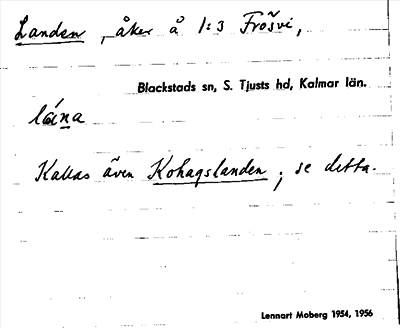 Landen, åker å 1:3 Frösvi,
Blackstads sn, S. Tjusts hd, Kalmar län.
Kallas även Kohagslanden; se detta.
Lennart Moberg 1954, 1956